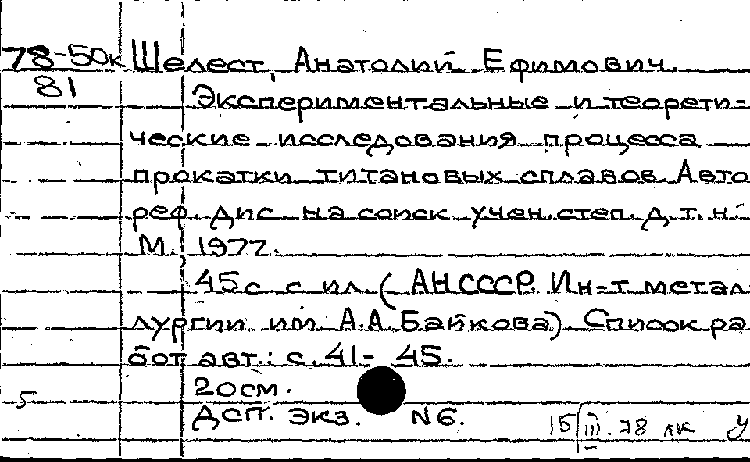 78-50к Шелест, Анатолий Ефимович.
81
Экспериментальные и теорети-
ческие исследования процесса
прокатки титановых сплавов. Авто
реф. дис. на соиск. учен. степ. д.т.н.
М. 1977.
45 с. с ил. (АН СССР. Ин-т метал
лургии им. А.А. Байкова) Список ра
бот авт.: с. 41- 45.
20 см.
5
ДСП. экз. N 6.
15/III.78 лк У